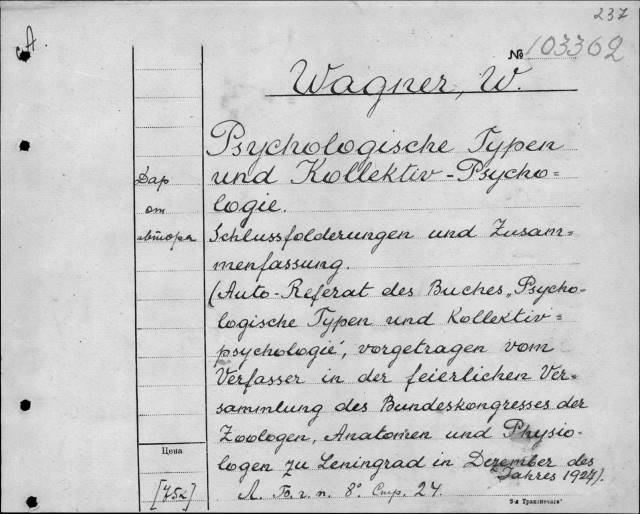 237
A
№ 103362
Wagner, W.
Psychologische Typen
und Kollektiv-Psycho=
logie.
Дар
от
автора
Schlussfolderungen und Zusam=
menfassung.
(Auto-Referat des Buches „Psycho-
logische Typen und Kollektiv=
psychologie", vorgetragen vom
Verfasser in der feierlichen Ver=
sammlung des Bundeskongresses der
Zoologen, Anatomen und Physio-
logen zu Leningrad in Dezember des
Jahres 1927).
Л. Б. г. п. 8°. Стр. 24.
Цена
[75к]